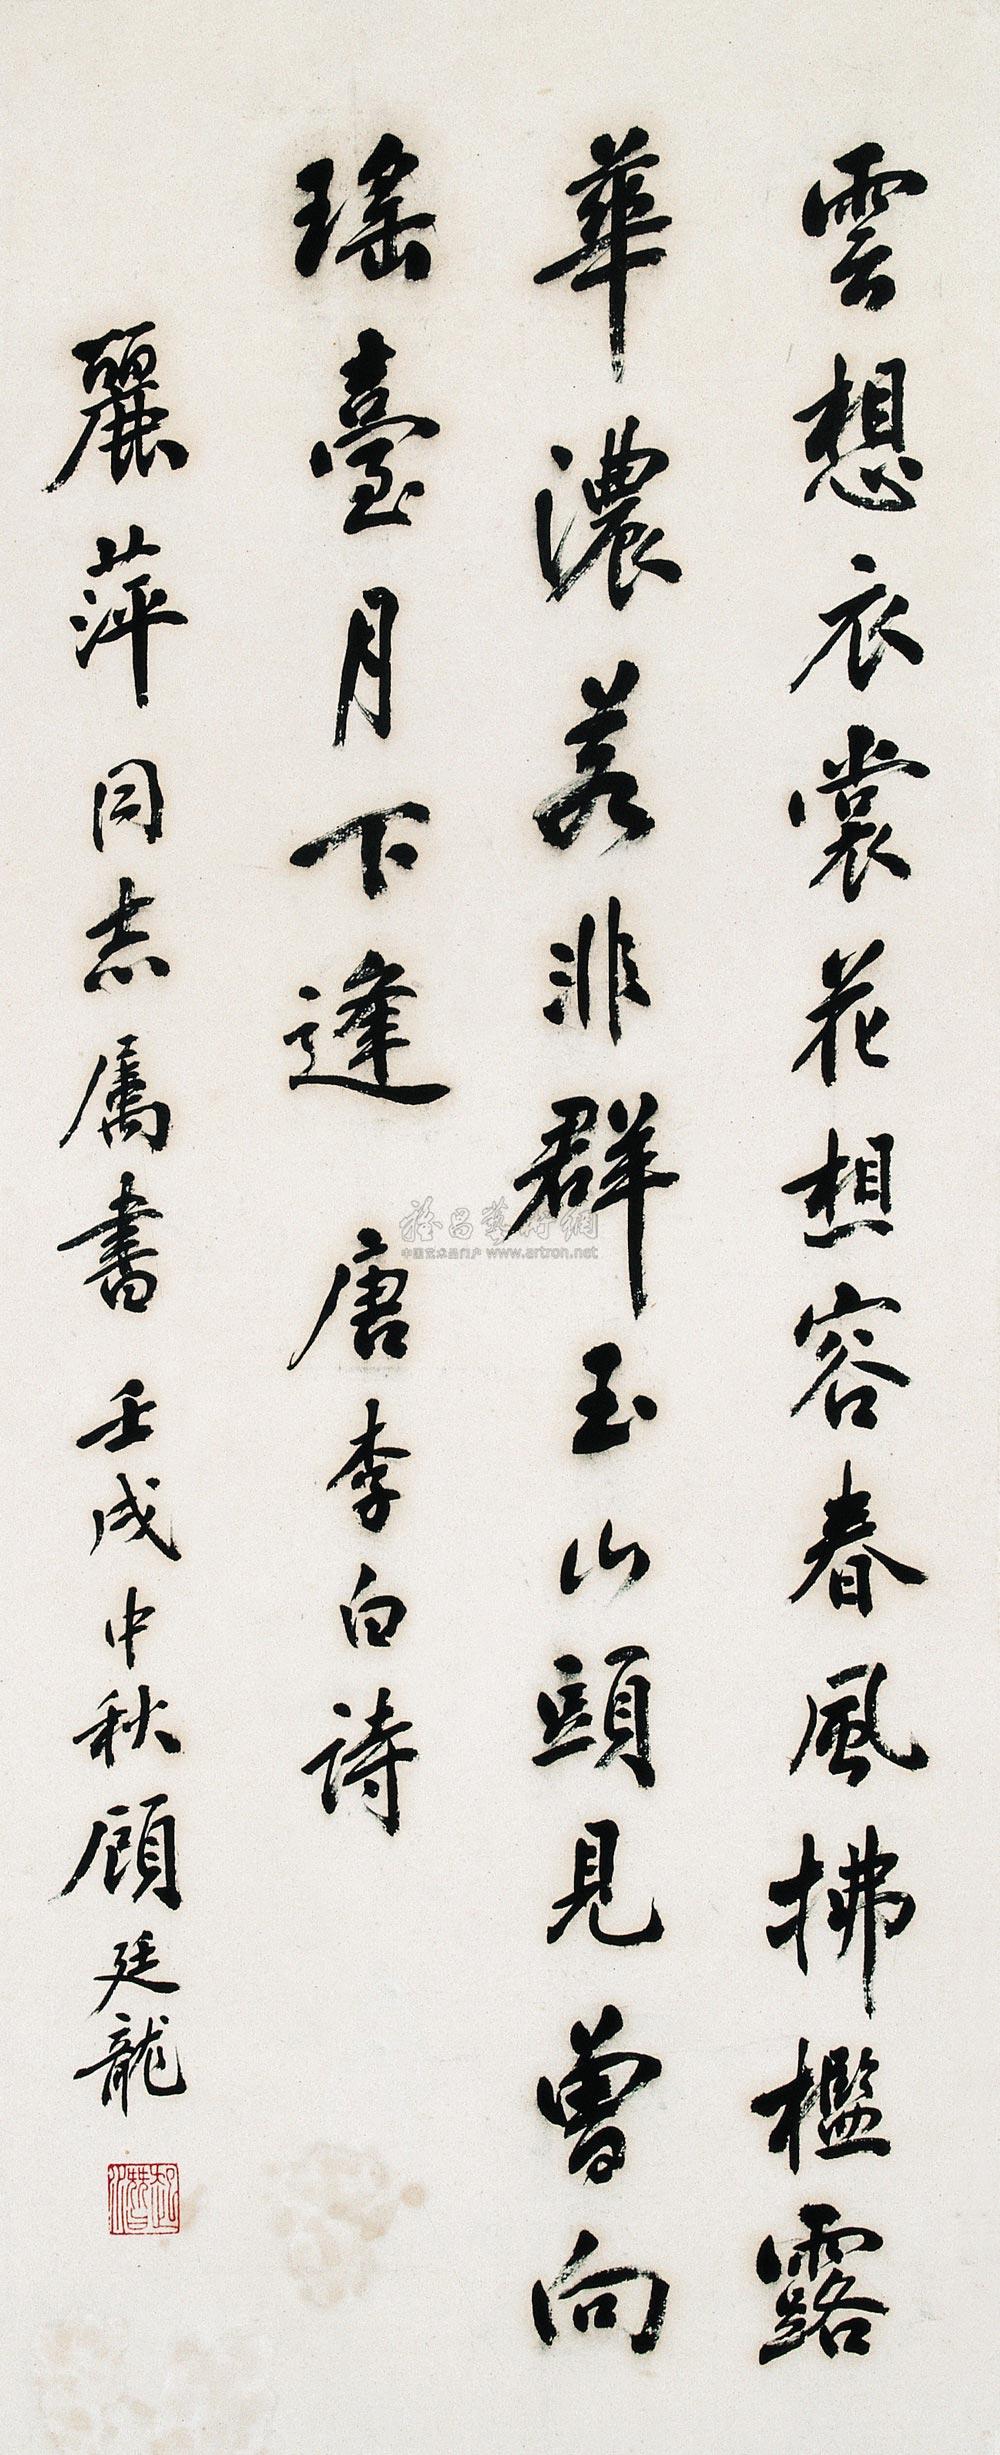 雲想衣裳花想容春風拂檻露
華濃若非群玉山頭見曾向
瑤臺月下逢 唐李白詩
麗萍同志属書 壬戌中秋顧廷龍
雅昌藝術網
中国艺术品门户 www.artron.net